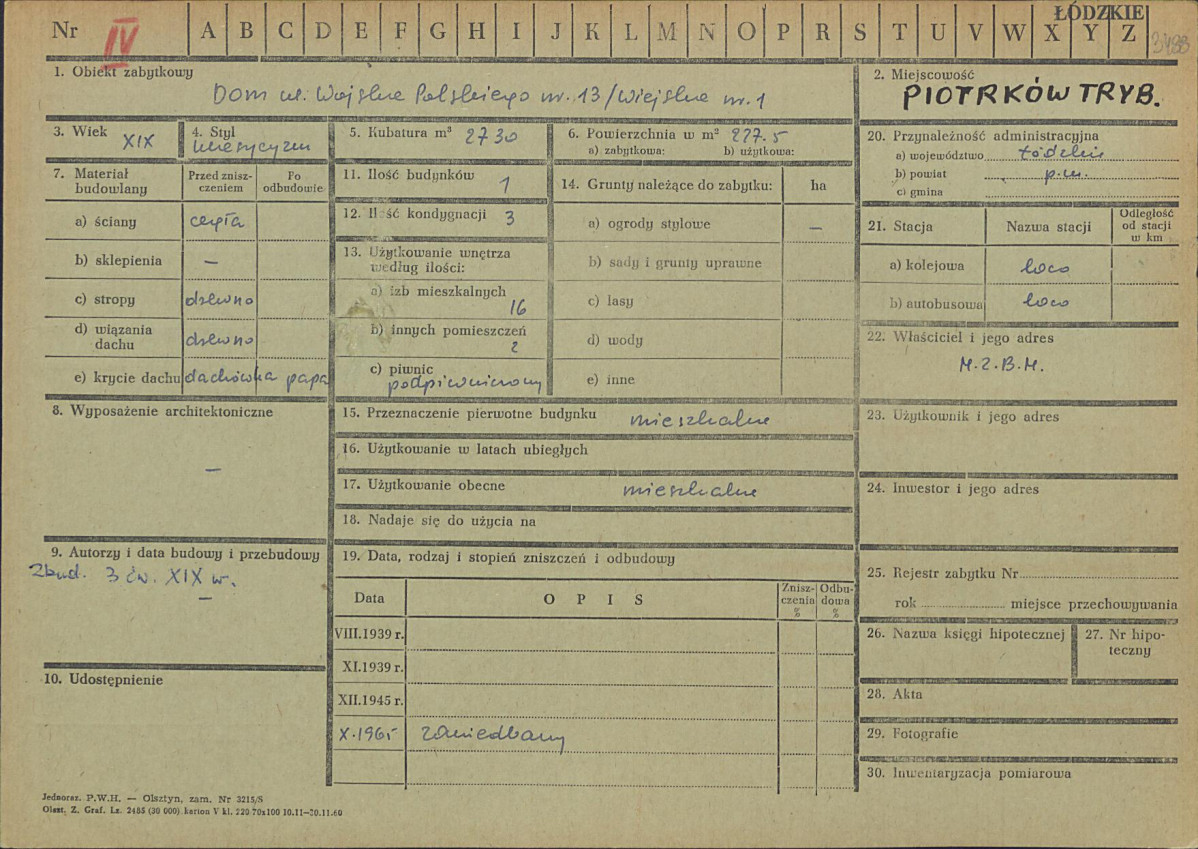 Nr IV A B C D E F G H I J K L M N O P R S T U V W X Y Z
ŁÓDZKIE
3498
1. Obiekt zabytkowy
Dom ul. Wojska Polskiego nr. 13/Wiejska nr. 1
2. Miejscowość
PIOTRKÓW TRYB.
3. Wiek XIX
4. Styl
5. Kubatura m³ 2730
6. Powierzchnia w m² 227.5
a) zabytkowa: b) użytkowa:
7. Materiał budowlany
Przed zniszczeniem
Po odbudowie
a) ściany cegła
b) sklepienia —
c) stropy drewno
d) wiązania dachu drewno
e) krycie dachu dachówka papa
8. Wyposażenie architektoniczne
—
9. Autorzy i data budowy i przebudowy
Zbud. 3 ćw. XIX w.
—
10. Udostępnienie
11. Ilość budynków 1
12. Ilość kondygnacji 3
13. Użytkowanie wnętrza według ilości:
a) izb mieszkalnych 16
b) innych pomieszczeń 2
c) piwnic podpiwniczony
14. Grunty należące do zabytku: ha
a) ogrody stylowe —
b) sady i grunty uprawne
c) lasy
d) wody
e) inne
15. Przeznaczenie pierwotne budynku mieszkalne
16. Użytkowanie w latach ubiegłych
17. Użytkowanie obecne mieszkalne
18. Nadaje się do użycia na
19. Data, rodzaj i stopień zniszczeń i odbudowy
Data O P I S Zniszczenia % Odbudowa %
VIII.1939 r.
XI.1939 r.
XII.1945 r.
X.1965 zaniedbany
20. Przynależność administracyjna
a) województwo łódzkie
b) powiat p.m.
c) gmina
21. Stacja Nazwa stacji Odległość od stacji w km
a) kolejowa loco
b) autobusowa loco
22. Właściciel i jego adres
M.Z.B.M.
23. Użytkownik i jego adres
24. Inwestor i jego adres
25. Rejestr zabytku Nr
rok miejsce przechowywania
26. Nazwa księgi hipotecznej
27. Nr hipoteczny
28. Akta
29. Fotografie
30. Inwentaryzacja pomiarowa
Jednoraz. P.W.H. — Olsztyn, zam. Nr 3215/S
Olszt. Z. Graf. Lz. 2485 (30 000) karton V kl. 220 70x100 10.11—30.11.60